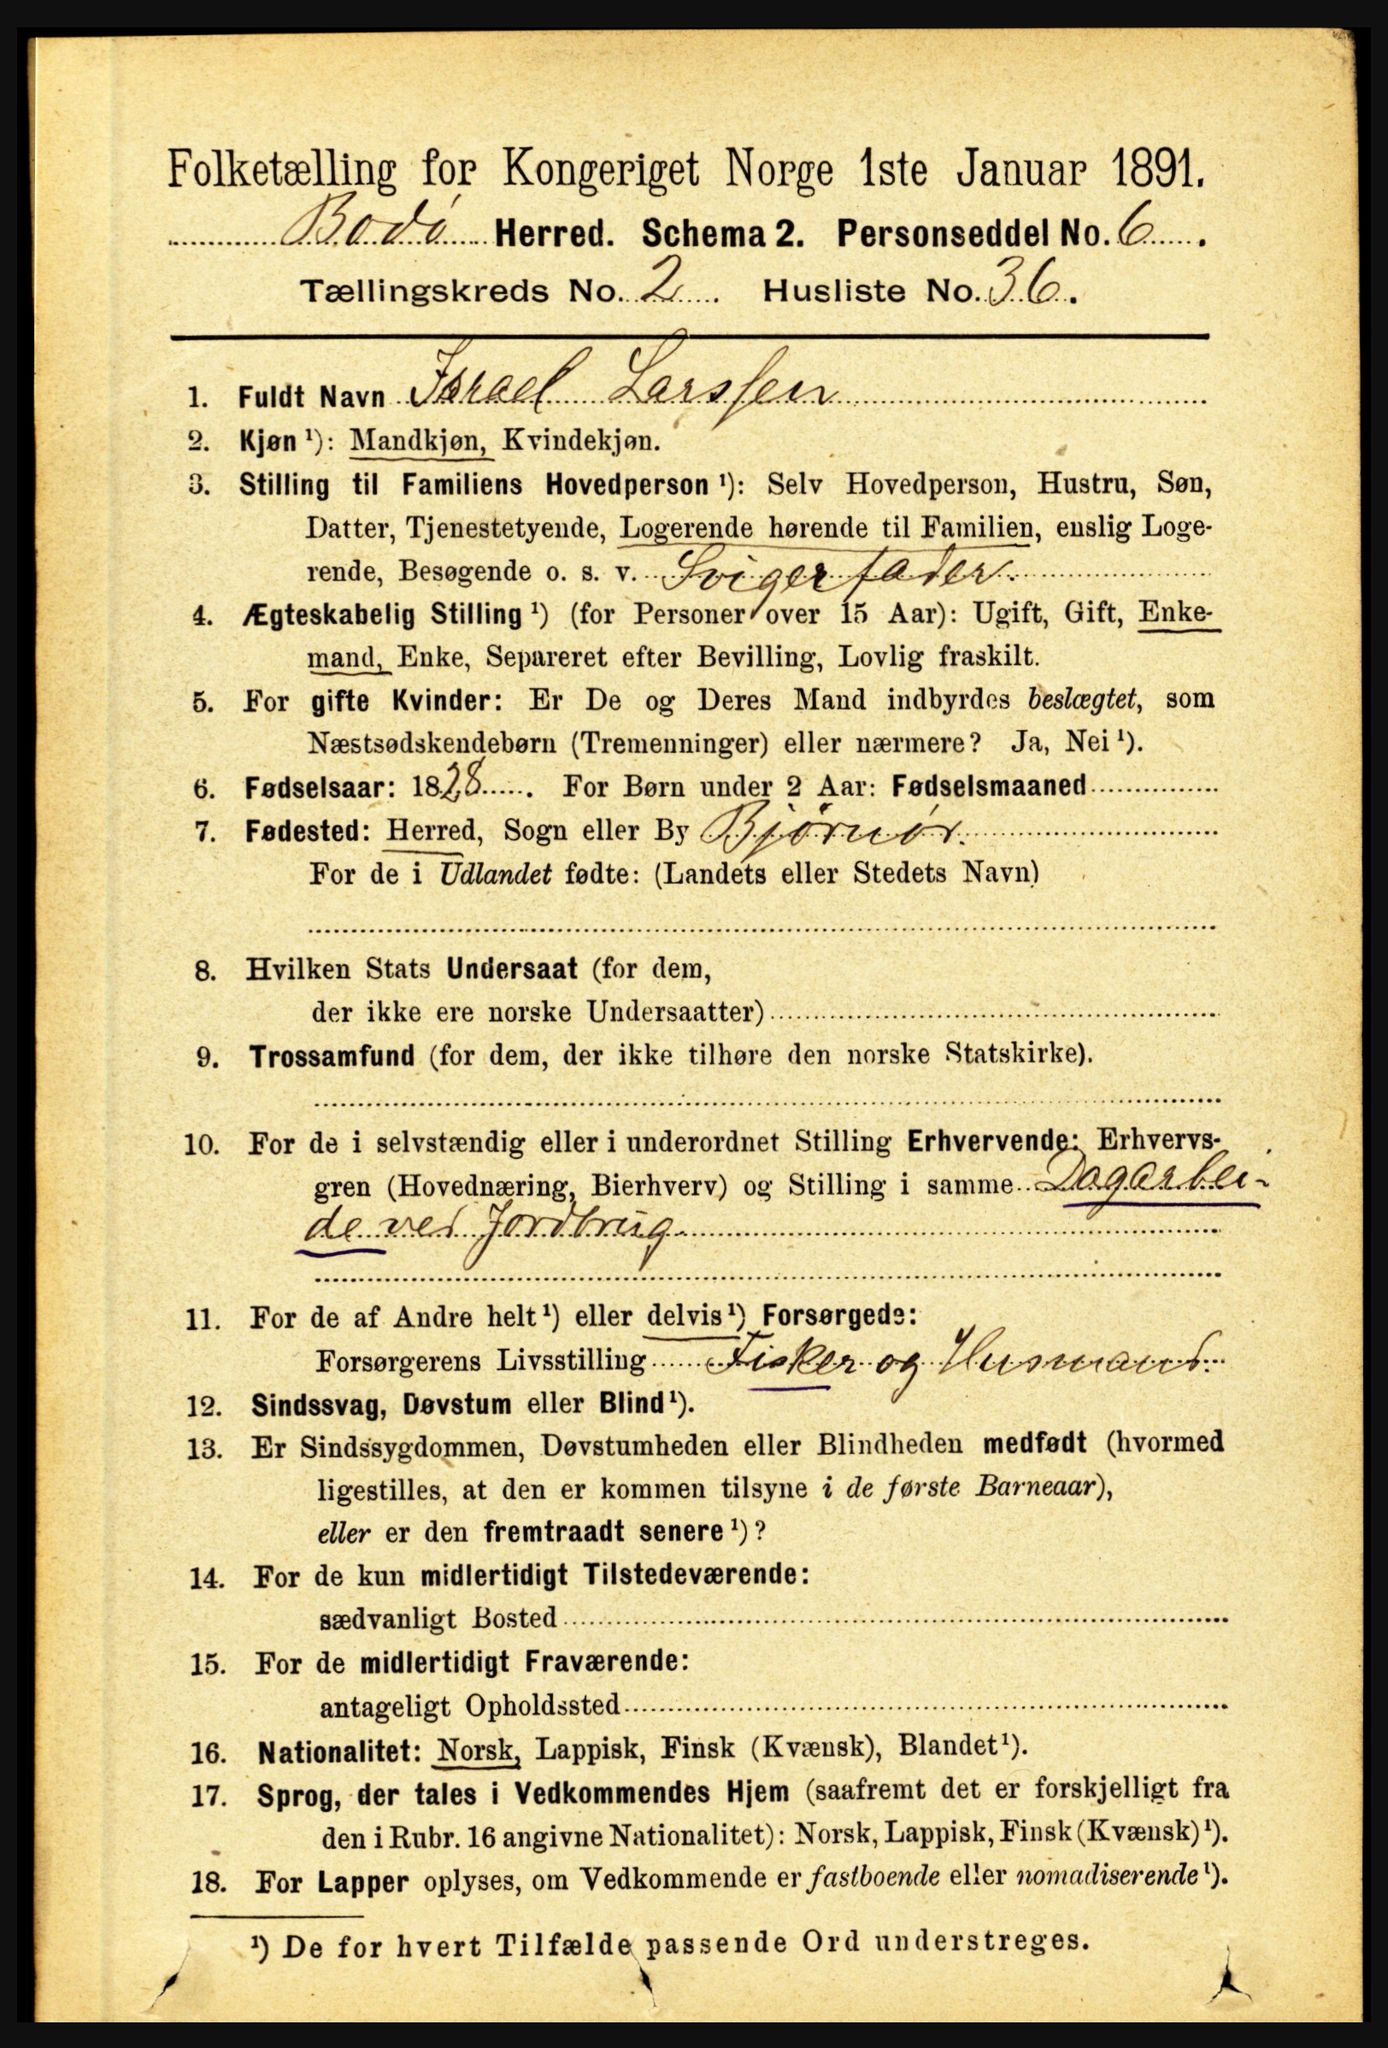 Folketælling for Kongeriget Norge 1ste Januar 1891.
Bodø Herred. Schema 2. Personseddel No. 6.
Tællingskreds No. 2. Husliste No. 36.
1. Fuldt Navn Israel Larssen
2. Kjøn ¹): Mandkjøn, Kvindekjøn.
3. Stilling til Familiens Hovedperson ¹): Selv Hovedperson, Hustru, Søn,
Datter, Tjenestetyende, Logerende hørende til Familien, enslig Loge-
rende, Besøgende o. s. v. Svigerfader.
4. Ægteskabelig Stilling ¹) (for Personer over 15 Aar): Ugift, Gift, Enke-
mand, Enke, Separeret efter Bevilling, Lovlig fraskilt.
5. For gifte Kvinder: Er De og Deres Mand indbyrdes beslægtet, som
Næstsødskendebørn (Tremenninger) eller nærmere? Ja, Nei ¹).
6. Fødselsaar: 1828. For Børn under 2 Aar: Fødselsmaaned
7. Fødested: Herred, Sogn eller By Bjørnør.
For de i Udlandet fødte: (Landets eller Stedets Navn)
8. Hvilken Stats Undersaat (for dem,
der ikke ere norske Undersaatter)
9. Trossamfund (for dem, der ikke tilhøre den norske Statskirke).
10. For de i selvstændig eller i underordnet Stilling Erhvervende: Erhvervs-
gren (Hovednæring, Bierhverv) og Stilling i samme Dagarbei-
de ved Jordbrug
11. For de af Andre helt ¹) eller delvis ¹) Forsørgede:
Forsørgerens Livsstilling Fisker og Husmand.
12. Sindssvag, Døvstum eller Blind ¹).
13. Er Sindssygdommen, Døvstumheden eller Blindheden medfødt (hvormed
ligestilles, at den er kommen tilsyne i de første Barneaar),
eller er den fremtraadt senere ¹)?
14. For de kun midlertidigt Tilstedeværende:
sædvanligt Bosted
15. For de midlertidigt Fraværende:
antageligt Opholdssted
16. Nationalitet: Norsk, Lappisk, Finsk (Kvænsk), Blandet ¹).
17. Sprog, der tales i Vedkommendes Hjem (saafremt det er forskjelligt fra
den i Rubr. 16 angivne Nationalitet): Norsk, Lappisk, Finsk (Kvænsk) ¹).
18. For Lapper oplyses, om Vedkommende er fastboende eller nomadiserende ¹).
¹) De for hvert Tilfælde passende Ord understreges.